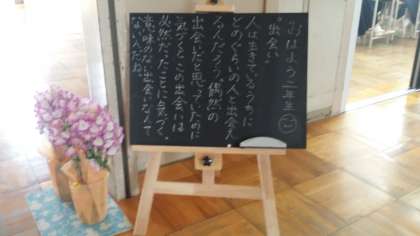 おはよう二年生
"出会い"
人は生きているうちに
どのぐらいの人と出会え
るんだろう。偶然の
出会いだと思っていたのに
気づくこの出会いは
必然だったことに気づく。
意味のない出会いなんて
ないんだね。